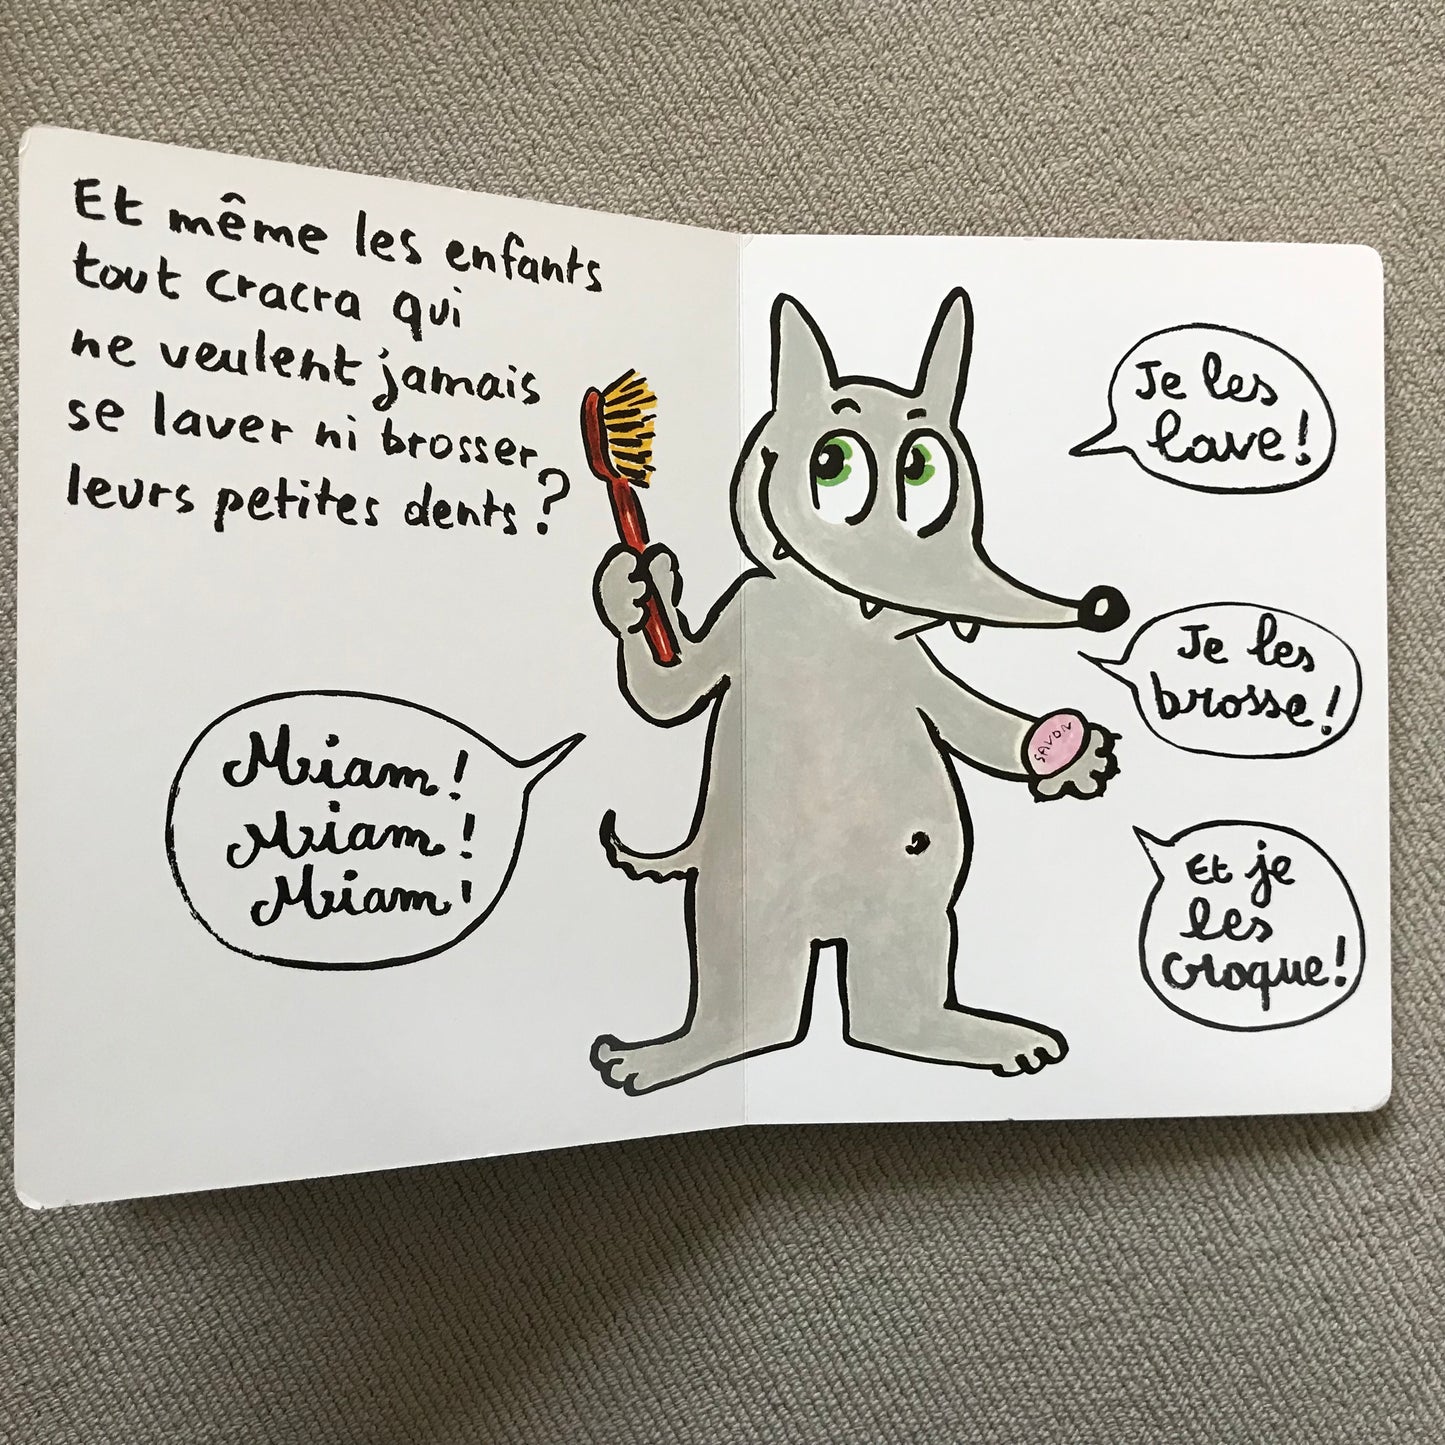 Et même les enfants
tout cracra qui
ne veulent jamais
se laver ni brosser
leurs petites dents ?
Miam !
Miam !
Miam !
Je les
lave !
Je les
brosse !
SAVON
Et je
les
croque !